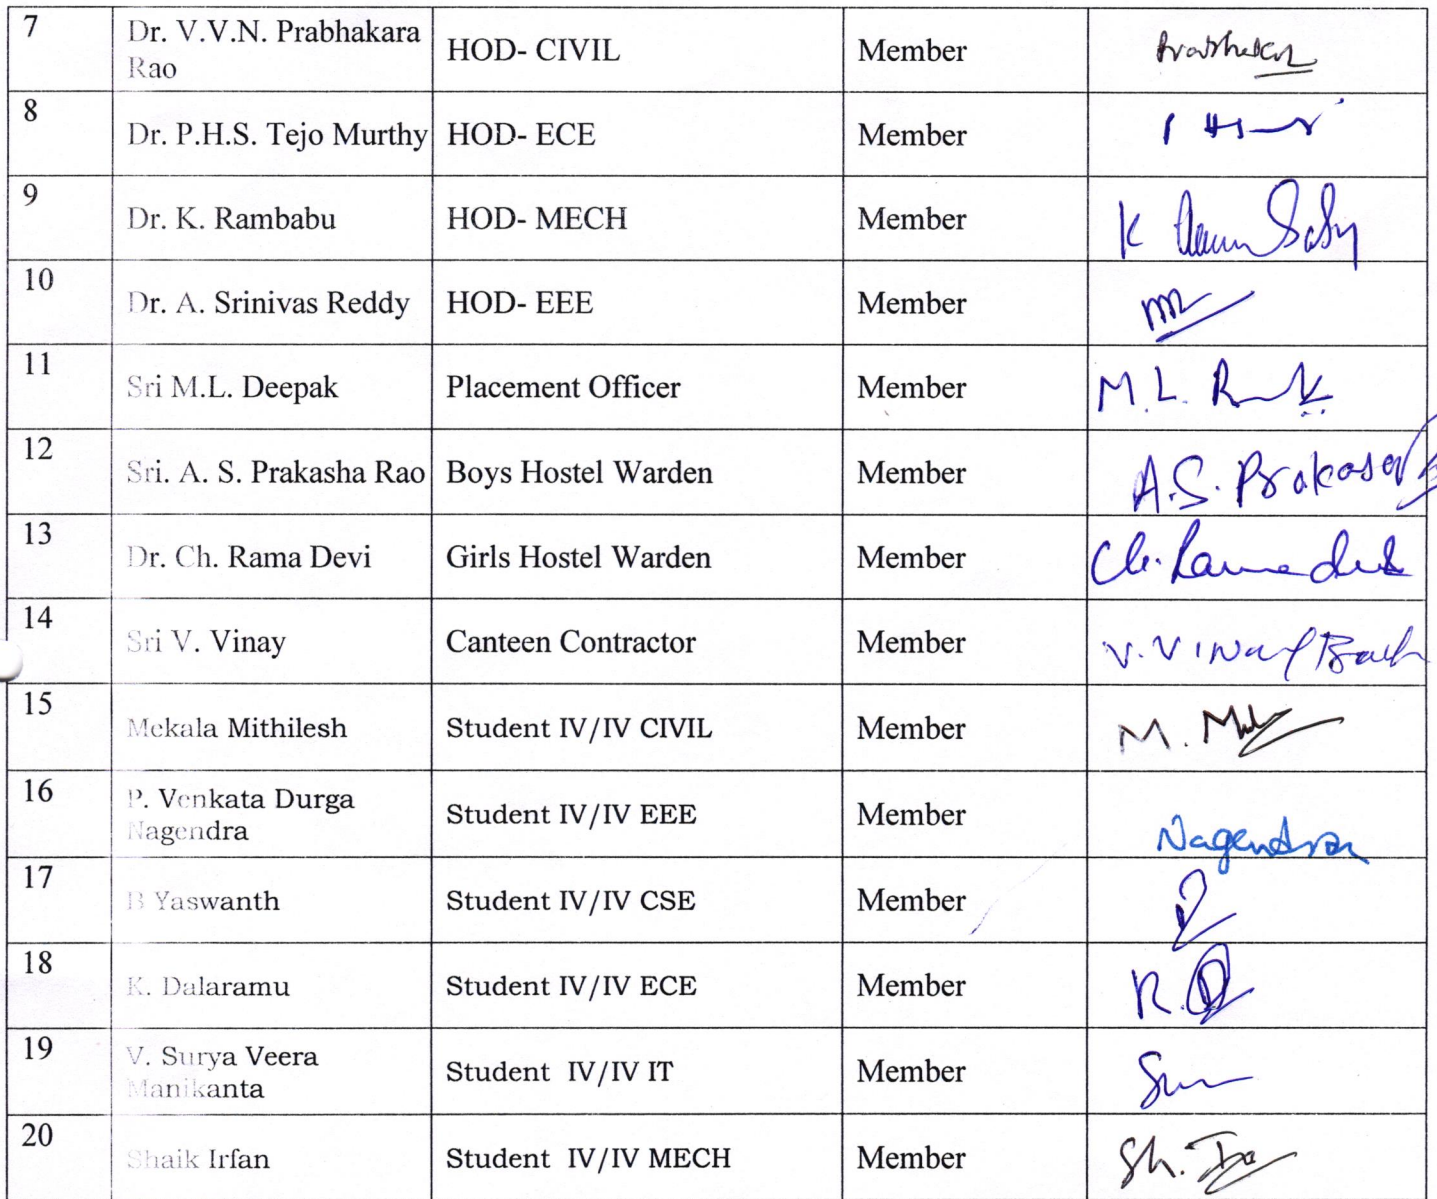 7 Dr. V.V.N. Prabhakara HOD- CIVIL Member Prabhakar
Rao
8 Dr. P.H.S. Tejo Murthy HOD- ECE Member
9 Dr. K. Rambabu HOD- MECH Member K
10 Dr. A. Srinivas Reddy HOD- EEE Member
11 Sri M.L. Deepak Placement Officer Member M.L.
12 Sri. A. S. Prakasha Rao Boys Hostel Warden Member A.S. Prakasa
13 Dr. Ch. Rama Devi Girls Hostel Warden Member Ch. Ramadevi
14 Sri V. Vinay Canteen Contractor Member V. Vinay
15 Mekala Mithilesh Student IV/IV CIVIL Member M.
16 P. Venkata Durga Student IV/IV EEE Member Nagendra
Nagendra
17 B Yaswanth Student IV/IV CSE Member
18 K. Dalaramu Student IV/IV ECE Member K.
19 V. Surya Veera Student IV/IV IT Member
Manikanta
20 Shaik Irfan Student IV/IV MECH Member Sh.